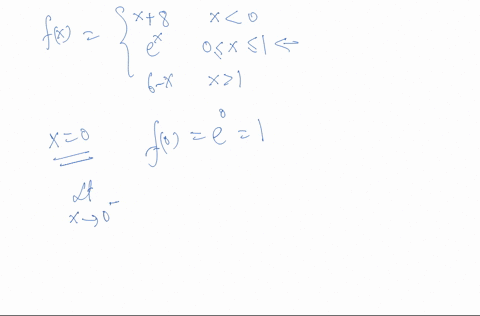 f(x) = { x+8 x < 0
e^x 0 ≤ x ≤ 1 ←
6-x x > 1
x = 0 f(0) = e^0 = 1
Lt
x → 0^-